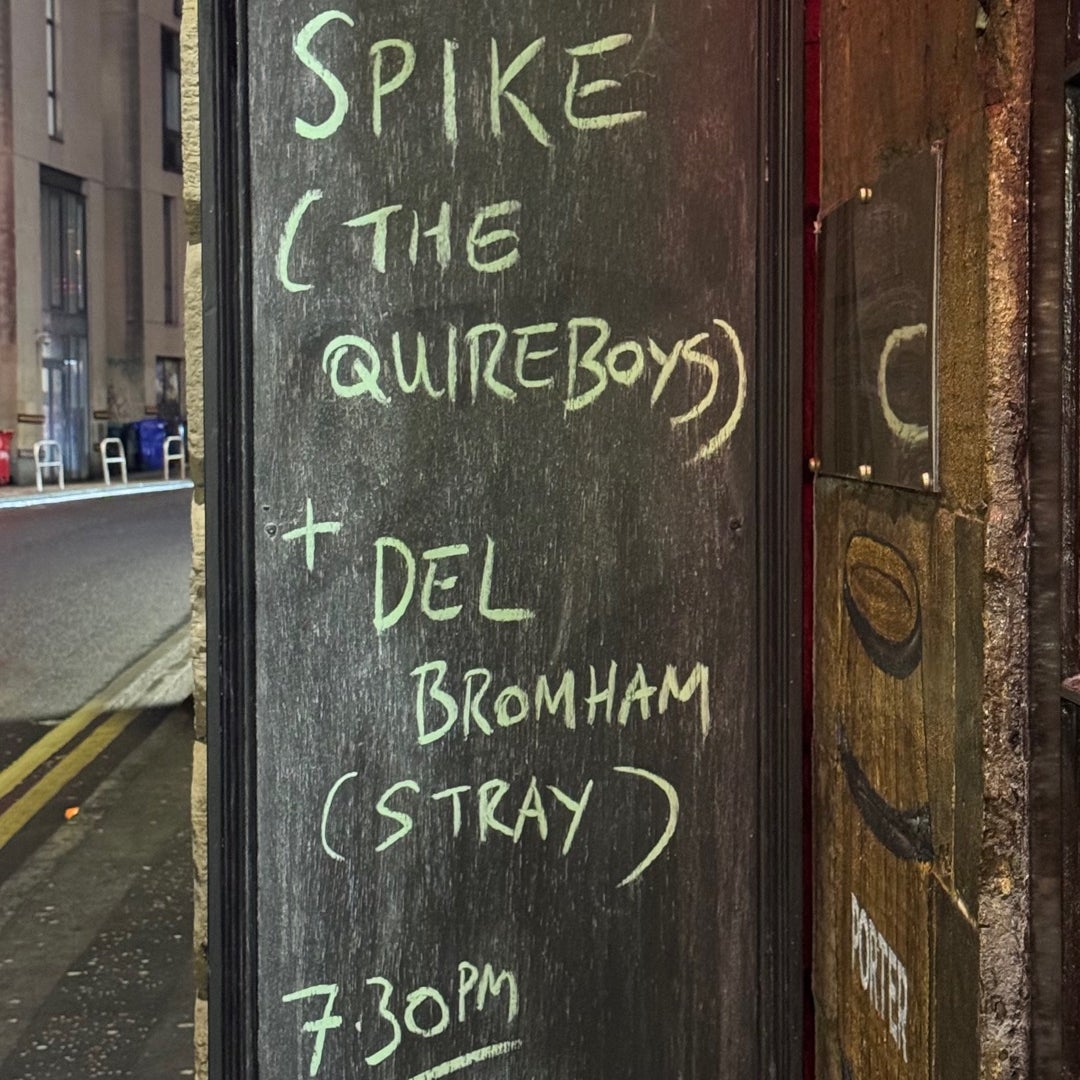 SPIKE
(THE
QUIREBOYS)
+ DEL
BROMHAM
(STRAY)
7.30PM
C
PORTER